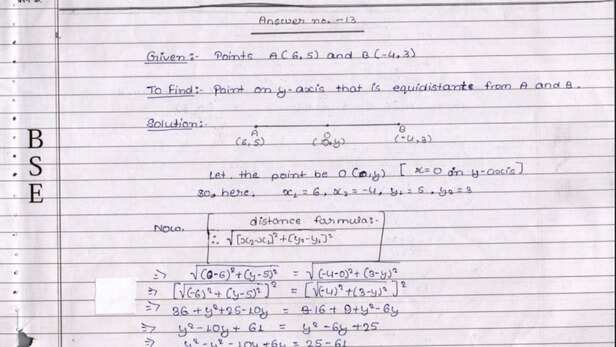 Answer no. - 13
Given:- Points A(6,5) and B(-4,3)
To Find:- Point on y-axis that is equidistante from A and B.
Solution:-
A B
(6,5) (0,y) (-4,3)
Let the point be O(0,y) [x=0 on y-axis]
so, here, x₁ = 6, x₂ = -4, y₁ = 5, y₂ = 3
Now, distance formula:-
∴ √[x₂-x₁]²+(y₂-y₁)²
=> √(0-6)²+(y-5)² = √(-4-0)²+(3-y)²
=> [√(-6)²+(y-5)²]² = [√(-4)²+(3-y)²]²
=> 36 + y²+25-10y = 16 + 9+y²-6y
=> y²-10y + 61 = y²-6y+25
=> y²-y²-10y+6y = 25-61
B
S
E